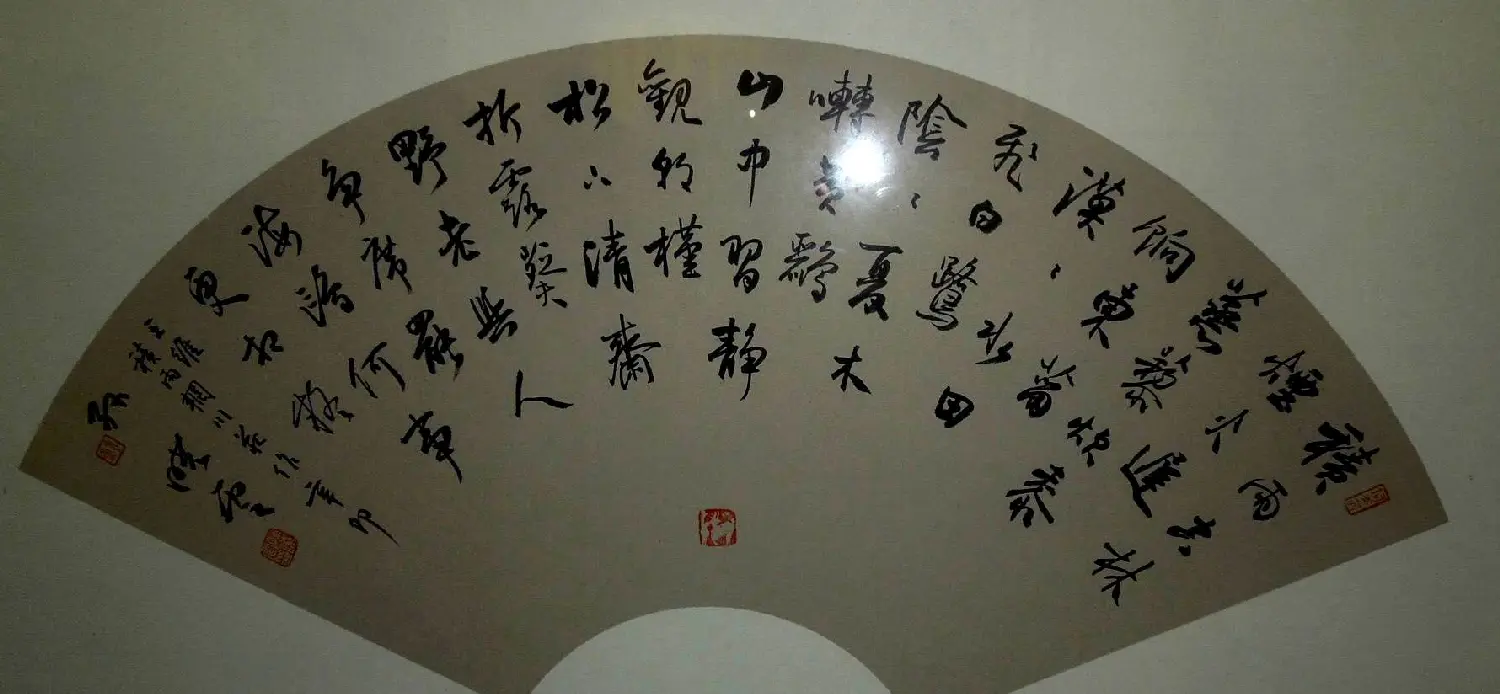 積雨空林
煙火遲
蒸藜炊黍
餉東菑
漠〻水田
飛白鷺
陰〻夏木
囀黃鸝
山中習靜
觀朝槿
松下清齋
折露葵
野老與人
爭席罷
海鷗何事
更相疑
王維
積雨輞川莊作 辛卯